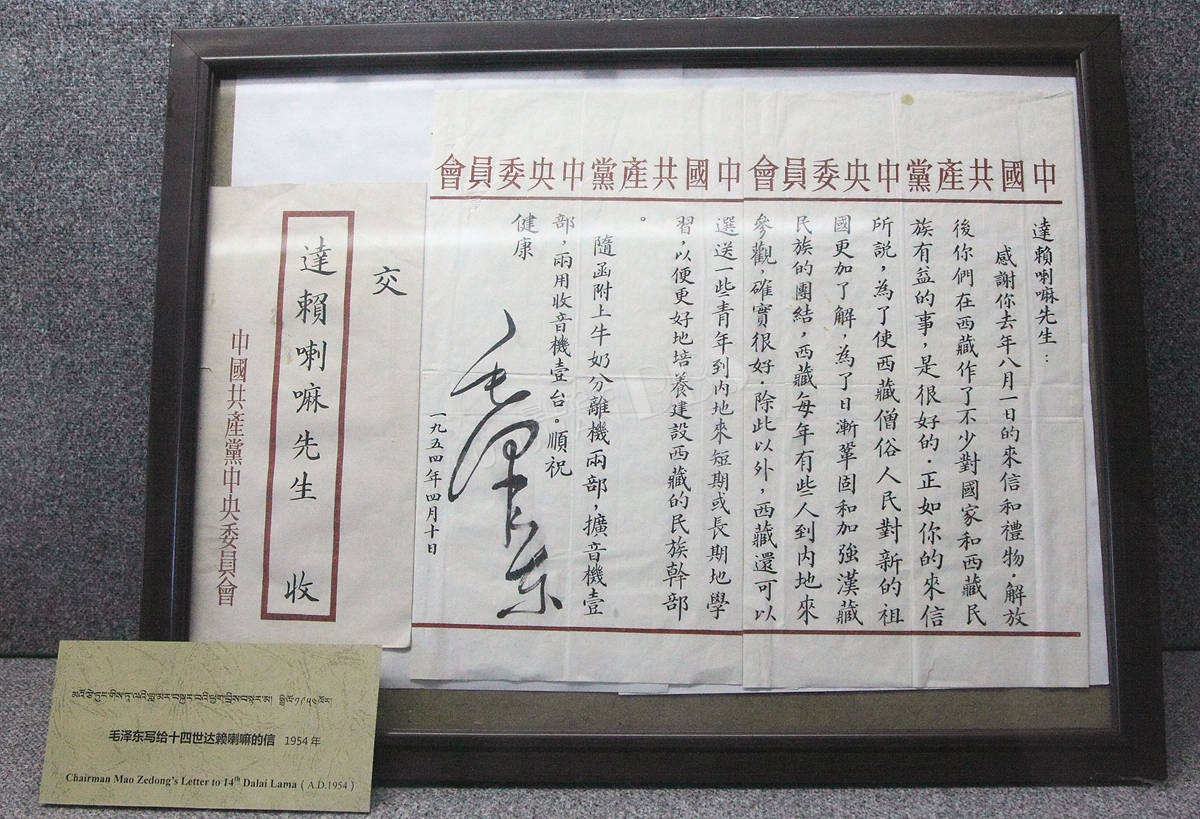 中國共產黨中央委員會
達賴喇嘛先生：
感謝你去年八月一日的來信和禮物．解放
後你們在西藏作了不少對國家和西藏民
族有益的事，是很好的．正如你的來信
所說，為了使西藏僧俗人民對新的祖
國更加了解，為了日漸鞏固和加強漢藏
民族的團結，西藏每年有些人到內地來
參觀，確實很好．除此以外，西藏還可以
中國共產黨中央委員會
選送一些青年到內地來短期或長期地學
習，以便更好地培養建設西藏的民族幹部
。
隨函附上牛奶分離機兩部，擴音機壹
部，兩用收音機壹台。順祝
健康
毛澤東
一九五四年四月十日
交
達賴喇嘛先生 收
中國共產黨中央委員會
毛泽东写给十四世达赖喇嘛的信 1954年
Chairman Mao Zedong's Letter to 14th Dalai Lama ( A.D.1954 )